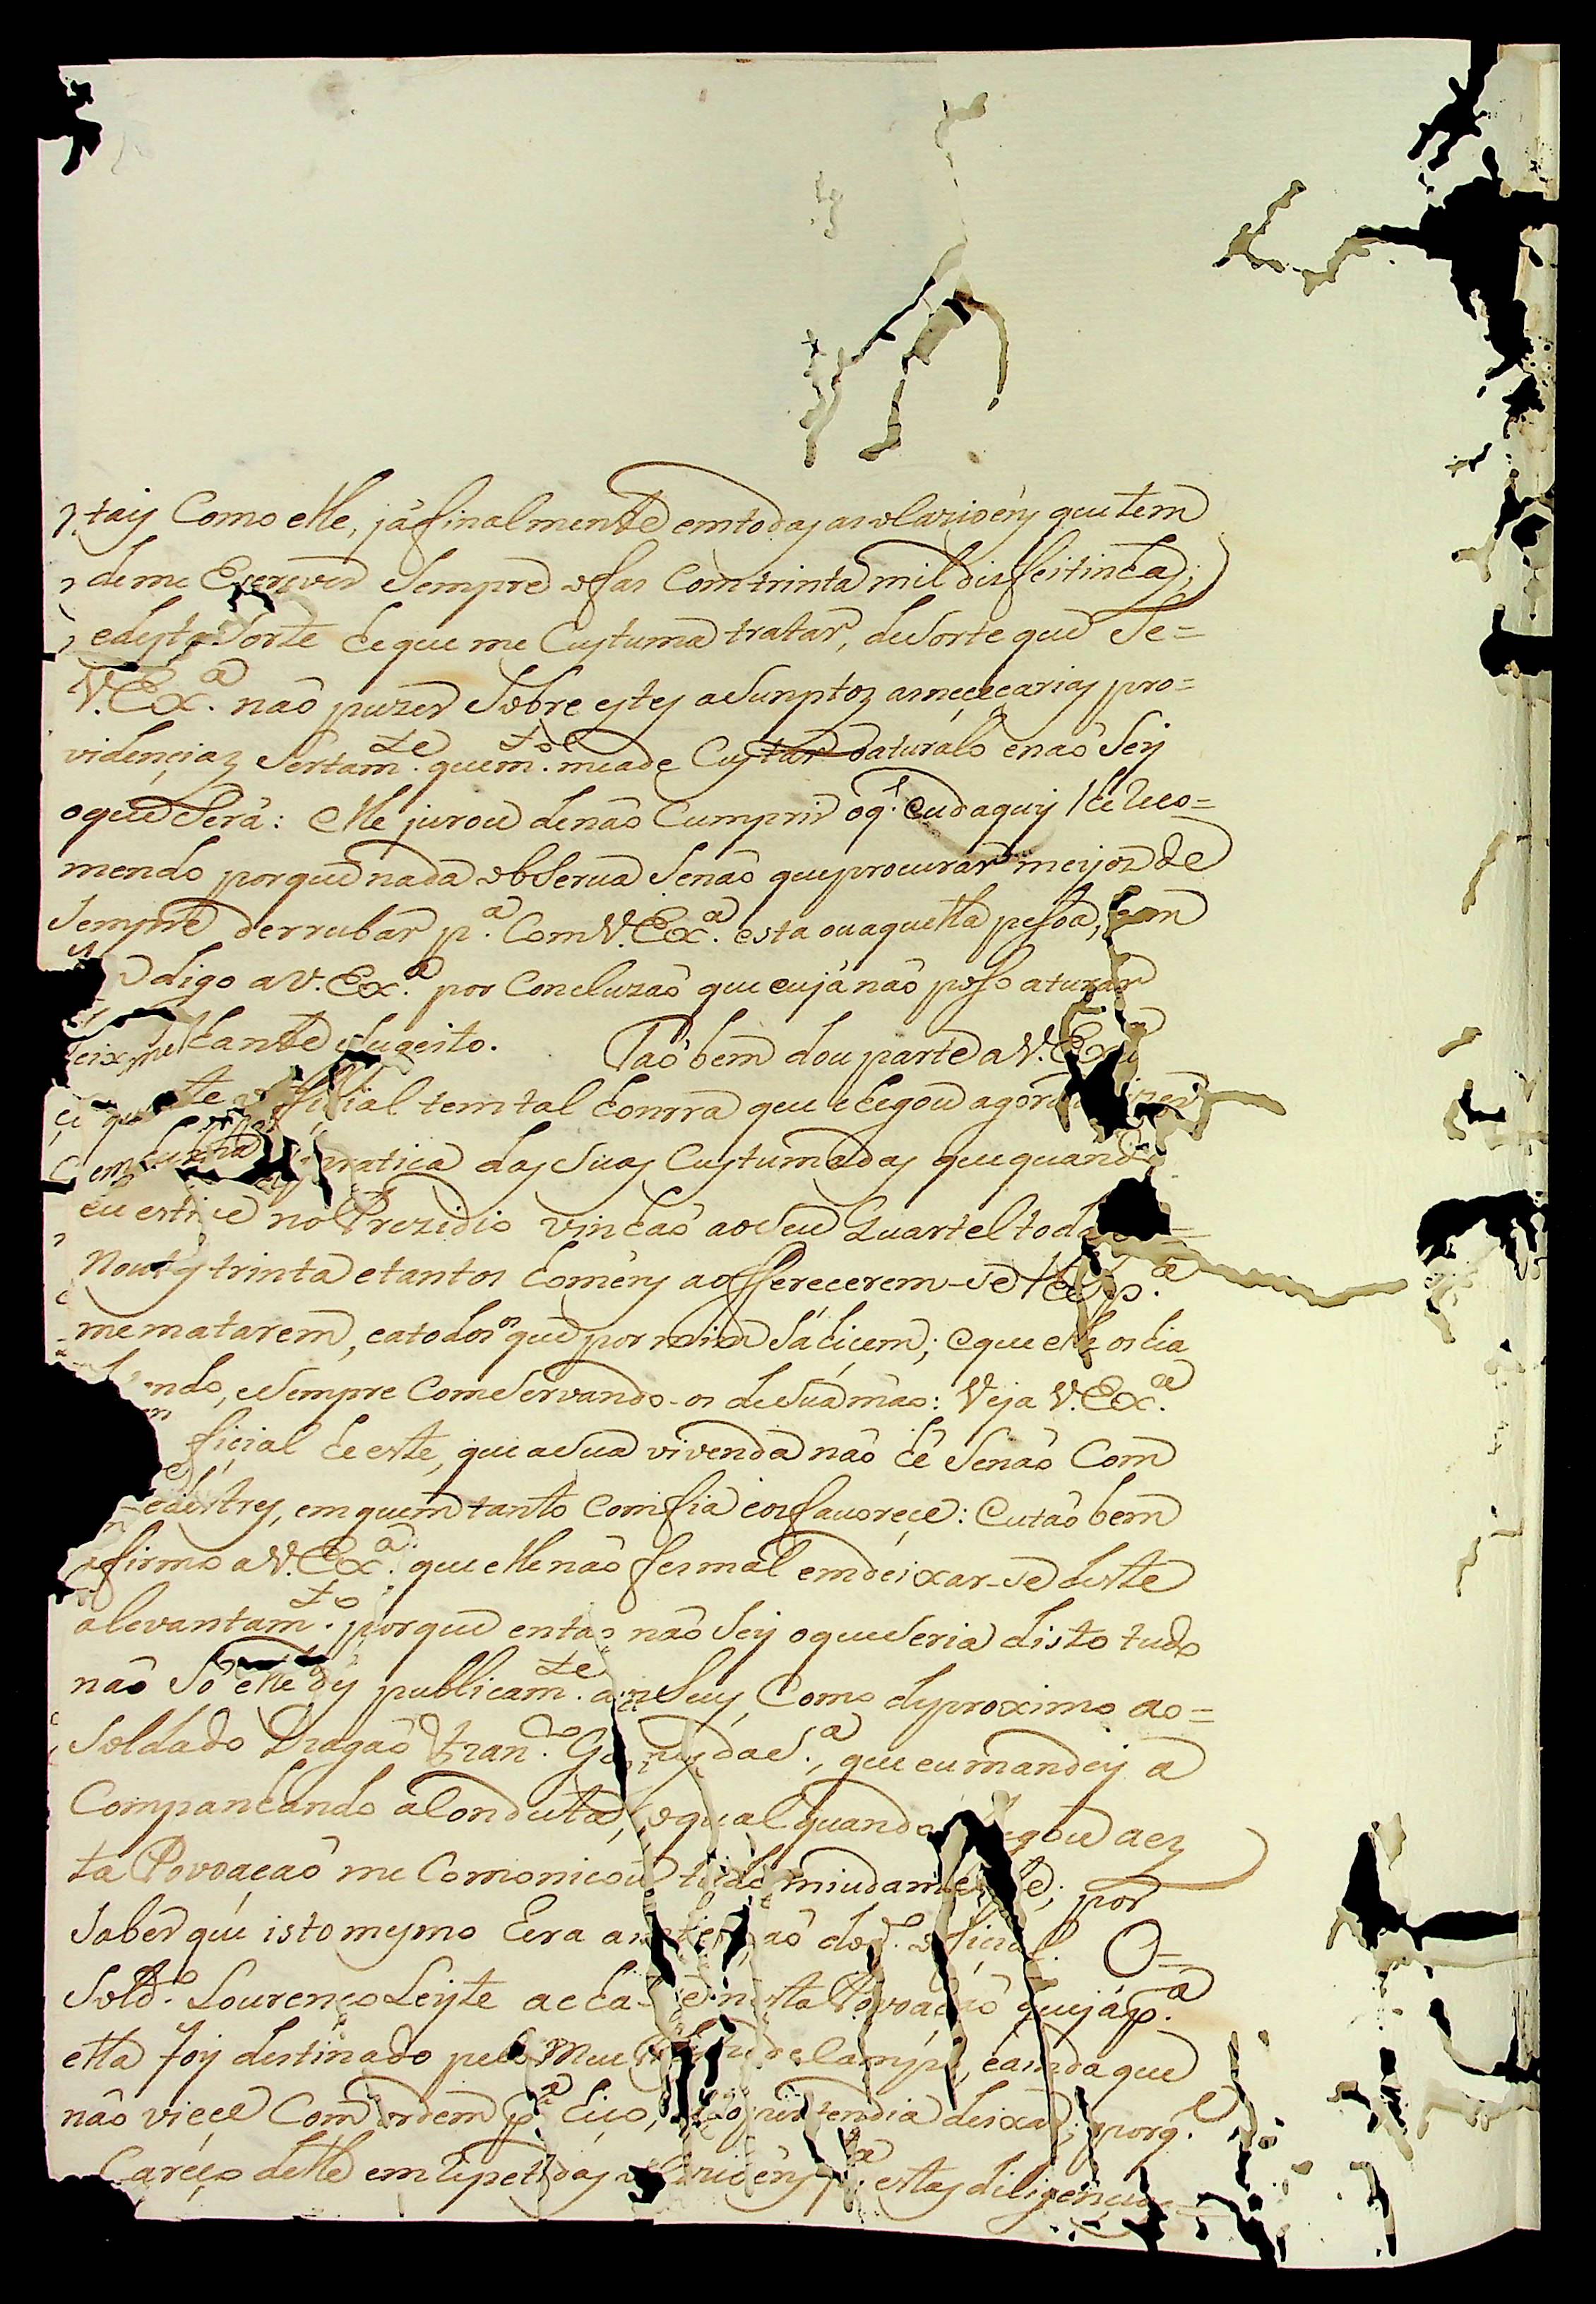 tais Como elle, já finalmente em todas as olaziões que tem
de me Escrever Sempre o fas Com trinta mil disfeitinhas;
e desta Sorte he que me Custuma tratar, de Sorte que Se=
V. Ex.ª não puzer Sobre estes aSunptoz as neçeçarias pro=
videnciaz Sertam.te quem.to me ade Custar aturalo e não Sey
o que Será: elle jurou de não Cumprir o q.' eu daquy lhe Reco=
mendo porque nada obServa Senão que procurar meyoz de
Sempre derrubar p.ª Com V. Ex.ª esta ou aquella peSoa,
digo a V. Ex.ª por Concluzão que eu já não poSo aturar
Sugeito. Tão bem dou parte a V. Ex.ª
oficial tem tal honrra que chegou agora
pratica das Suas Custumadas que quando
eu estive no Prezidio vinhão ao Seu Quartel todas
Noutes trinta e tantos homens a offerecerem-se lhe p.ª
me matarem, e a todos os que por mim Sáhicem; e que elle os hia
endo, e Sempre ComServando-os de Sua mão: Veja V. Ex.ª
ficial he este, que a Sua vivenda não hé Senão Com
pedestres, em quem tanto Comfia e os favoreçe: Eu tão bem
afirmo a V. Ex.ª que elle não fes mal em deixar-se deste
alevantam.to porque então não Sey o que Seria disto tudo
não Só elle dis publicam.te aos Seus, Como de proximo ao=
Soldado Dragão Fran.co Gomes da S.ª, que eu mandey a
Companhando a Conduta, o qual quando chegou a es
ta Povoação me Comonicou tudo miudamente; por
Saber que isto mesmo Era a intenção do d.º oficial. O=
Sold.º Lourenço Leyte acha-se nesta Povoação que já p.ª
ella foy destinado pelo Meu de Campo, e ainda que
não vieçe Com ordem p.ª hiço, pertendia deixar; porq.'
Careço delle em Repetidas olaziões p.ª estas diligencias